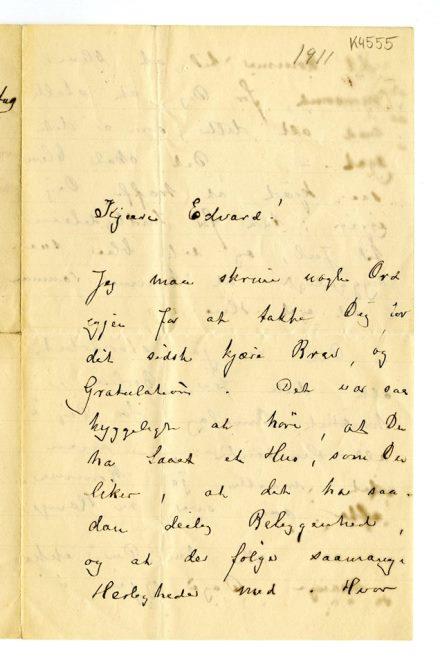 1911 K4555
Kjære Edvard!
Jeg maa skrive nogle Ord
igjen for at takke Dig for
dit sidste kjære Brev, og
Gratulation. Det var saa
hyggeligt at höre, at Du
ha faaet et Hus, som Du
liker, at det ha saa-
dan deilig Beliggenhed,
og at der følge saamange
Herligheder med. Hvor